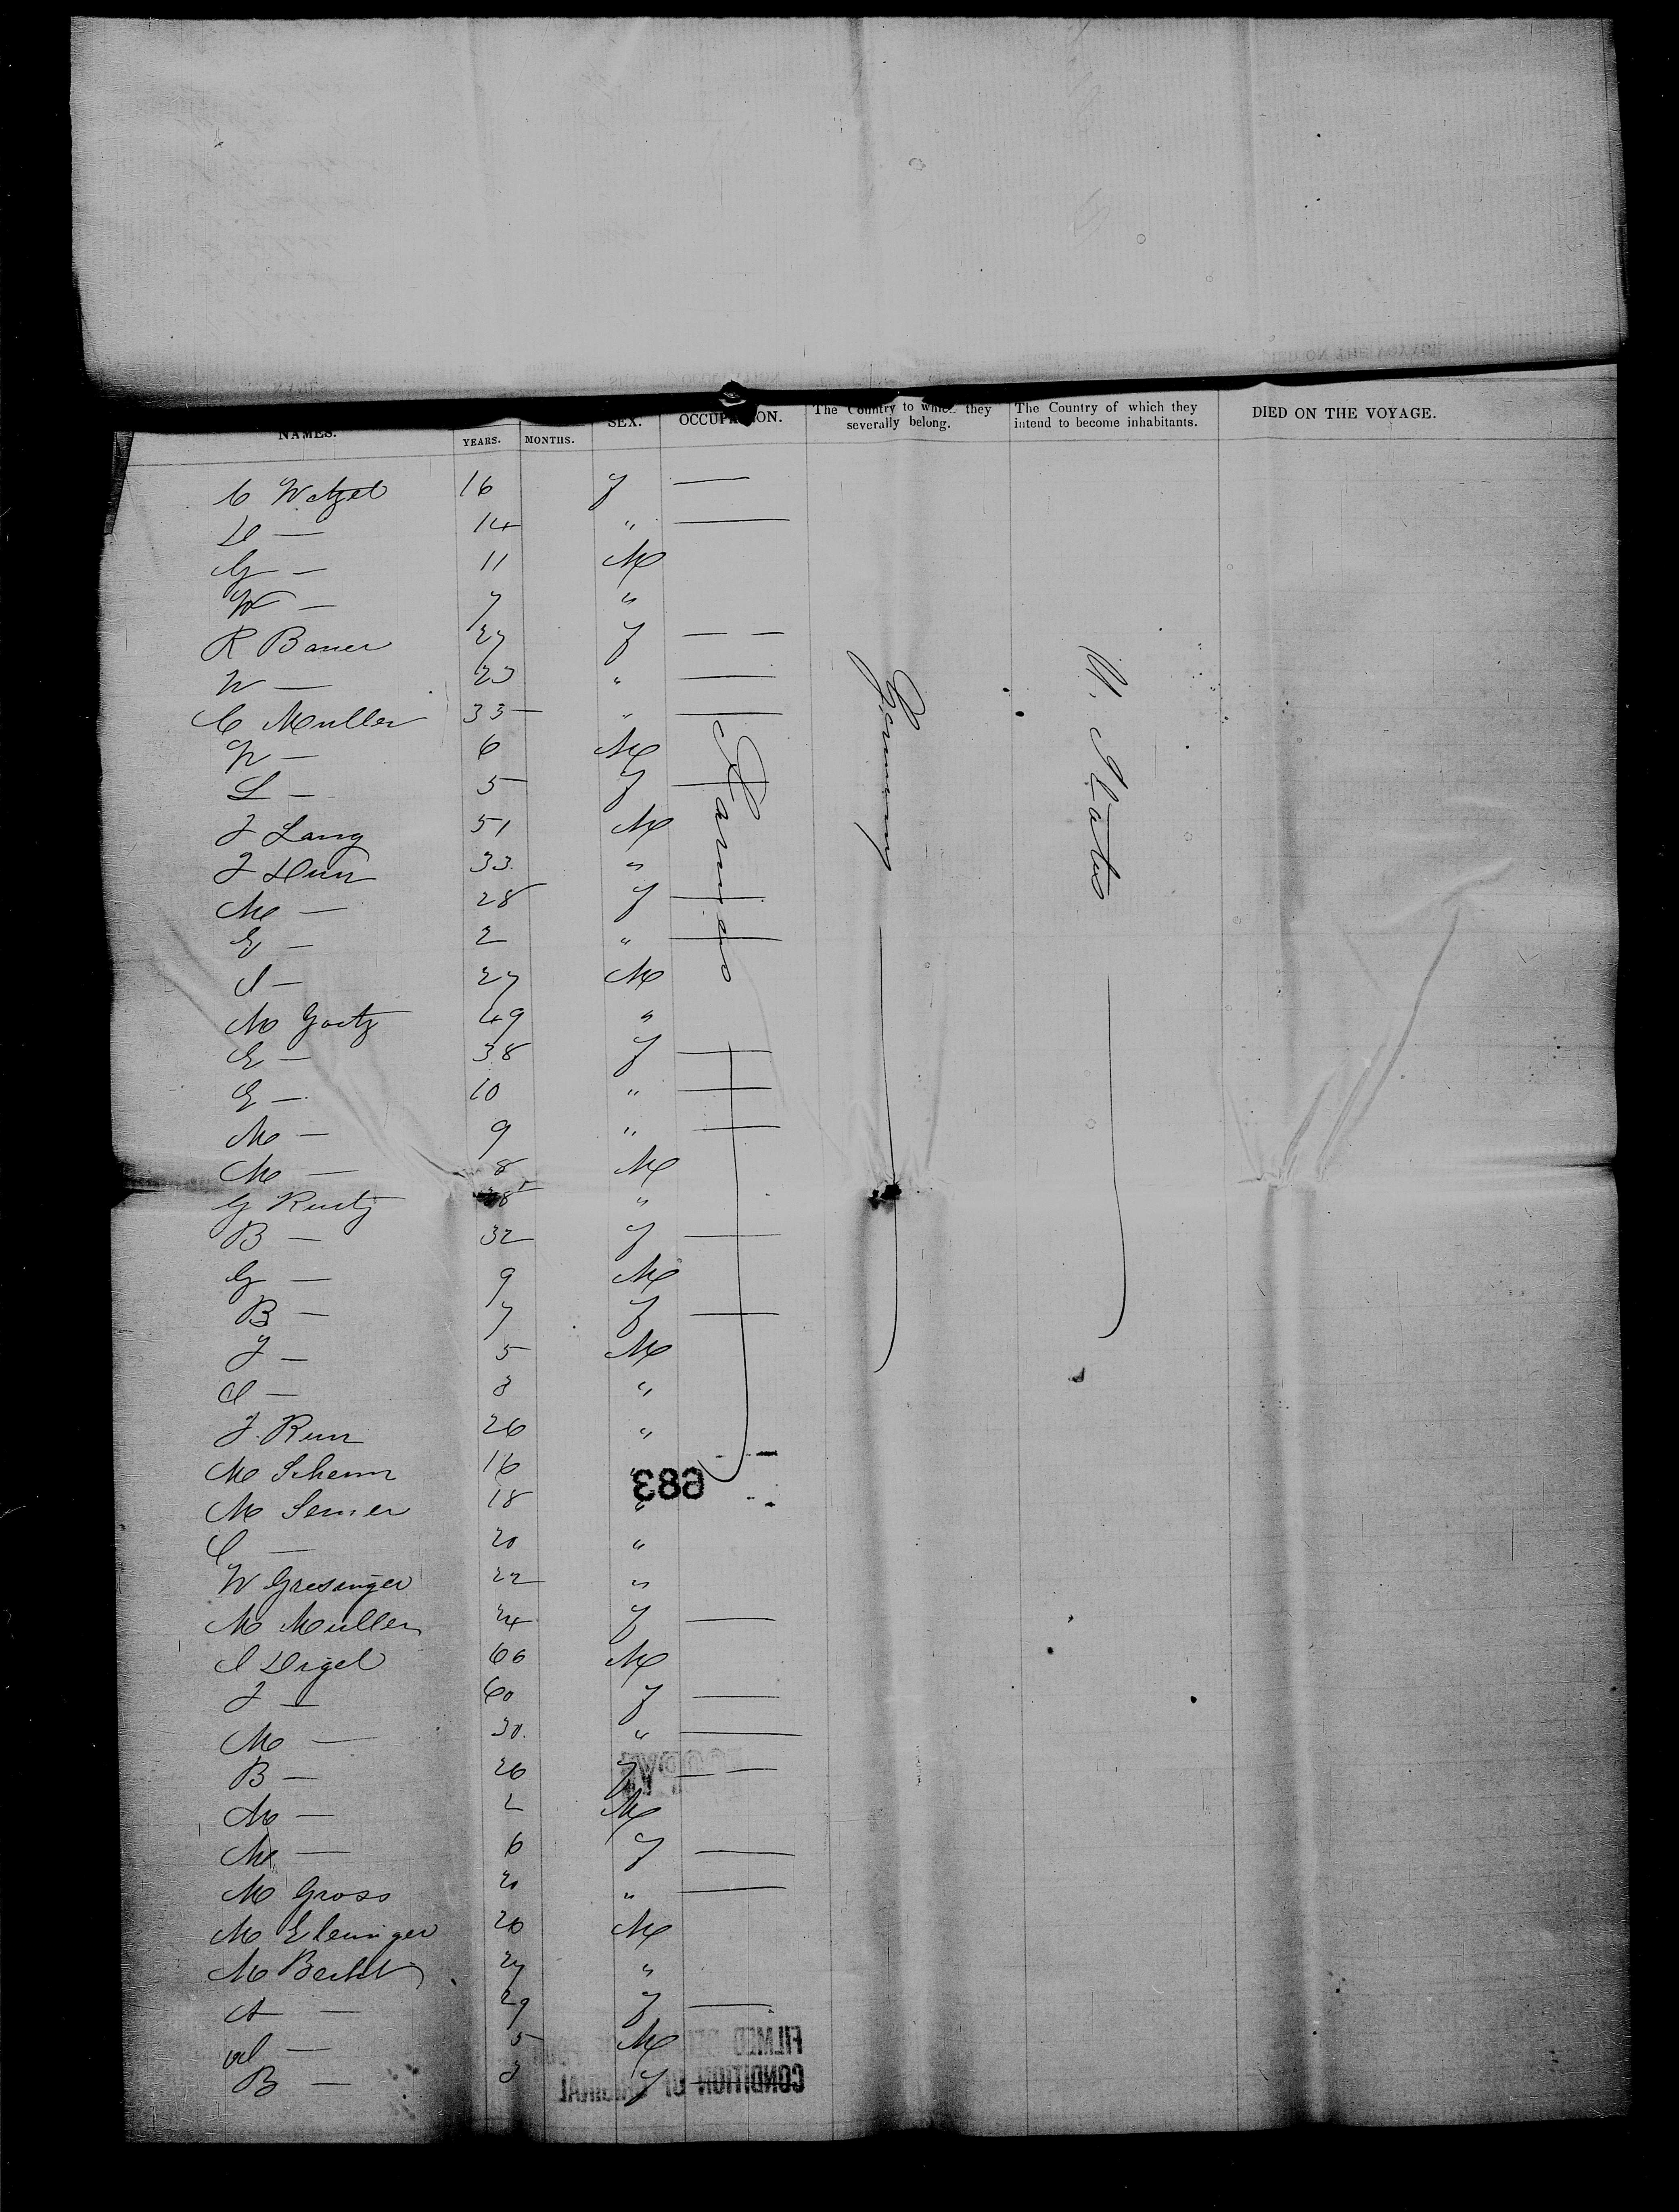 NAMES. YEARS. MONTHS. SEX. OCCUPATION. The Country to which they severally belong. The Country of which they intend to become inhabitants. DIED ON THE VOYAGE.
C Wetzel 16 F —
D — 14 " —
G — 11 M
W — 7 "
R Bauer 27 F — —
W — 23 " —
C Muller 33 " —
W — 6 M
L — 5 F —
J Lang 51 M
J Dürr 33 "
M — 28 F —
E — 2 " —
J — 27 M
M Goetz 49 "
E — 38 F —
E — 10 " —
M — 9 " —
M — 8 M
G Kurtz 38 "
B — 32 F —
G — 9 M
B — 7 F —
J — 5 M
C — 3 "
J. Run 26 "
M Schenn 16
M Semer 18 "
C — 20 "
W Gresinger 22 "
M Muller 24 F —
J Digel 66 M
J — 60 F —
M — 30. " —
B — 26 F — —
M — 2 M
M — 6 F —
M Gross 20 " —
M Eleninger 20 M
M Becht 27 "
A — 29 F —
— 5 M
B — 3 F —
Farmers
Germany
U. States
683
FILMED
CONDITION OF ORIGINAL